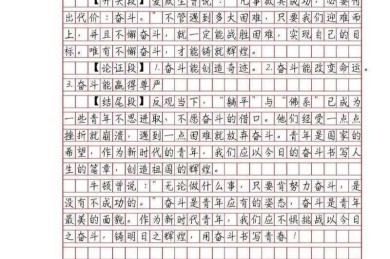 【开头段】爱默生曾说:"凡事欲其成功,必要付
出代价:奋斗。"不管遇到多大困难,只要我们迎难而
上,并且不懈奋斗,就一定能战胜困难,实现自己的目
标。唯有不懈奋斗,才能铸就辉煌。
【论证段】1.奋斗能创造奇迹。2.奋斗能改变命运。
3.奋斗能赢得尊严
【结尾段】反观当下,"躺平"与"佛系"已成为
一些青年不思进取、不愿奋斗的借口。他们经受一点点
挫折就崩溃,遇到一点困难就放弃奋斗。青年是国家的
希望,作为新时代的青年,我们应以今日的奋斗书写人
生的笔章,创造祖国的辉煌。
牛顿曾说:"无论做什么事,只要肯努力奋斗,是
没有不成功的。"奋斗是青年应有的姿态,奋斗是青年
最美的面貌。作为新时代青年,我们应不惧挑战以今日
之奋斗,铸明日之辉煌,用奋斗书写青春!